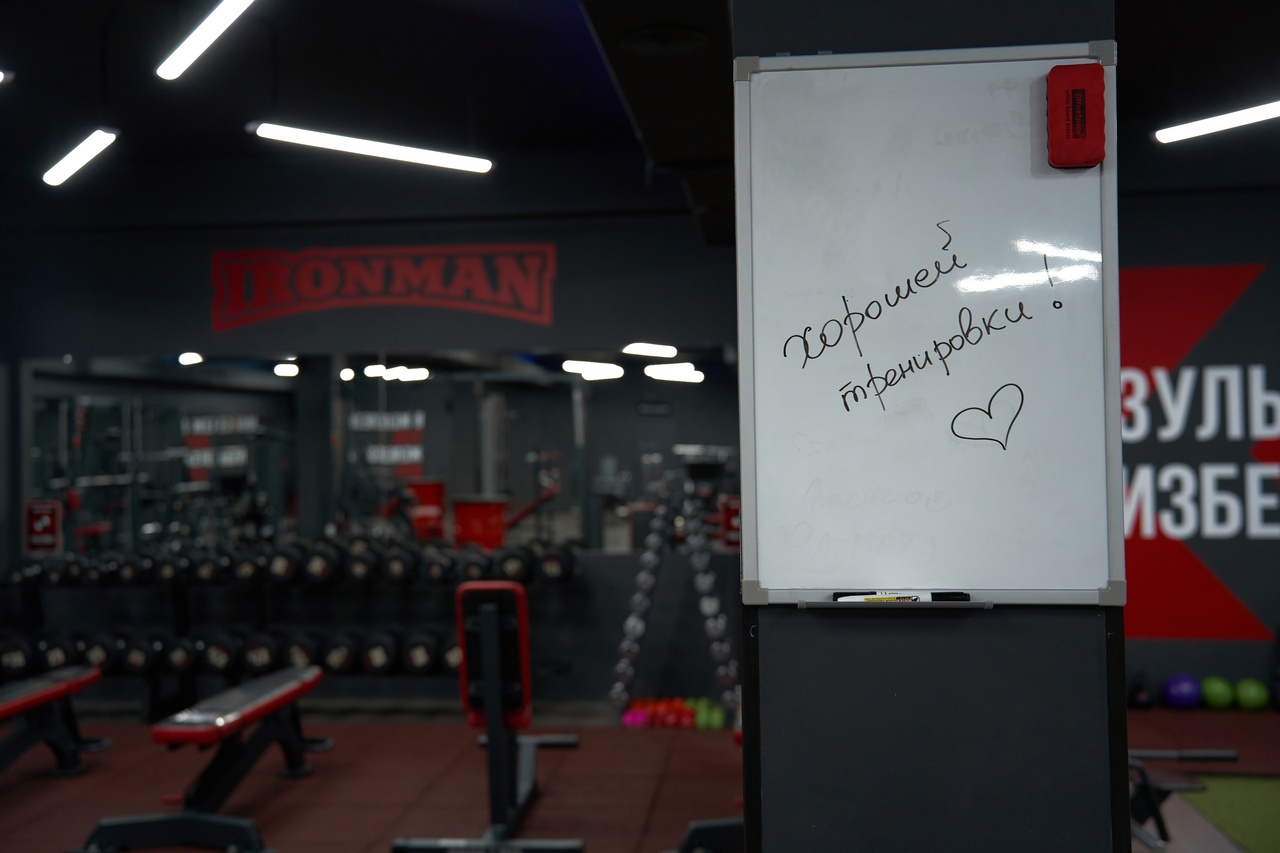 IRONMAN
хорошей
тренировки!
ЗУЛЬ
ИЗБЕ